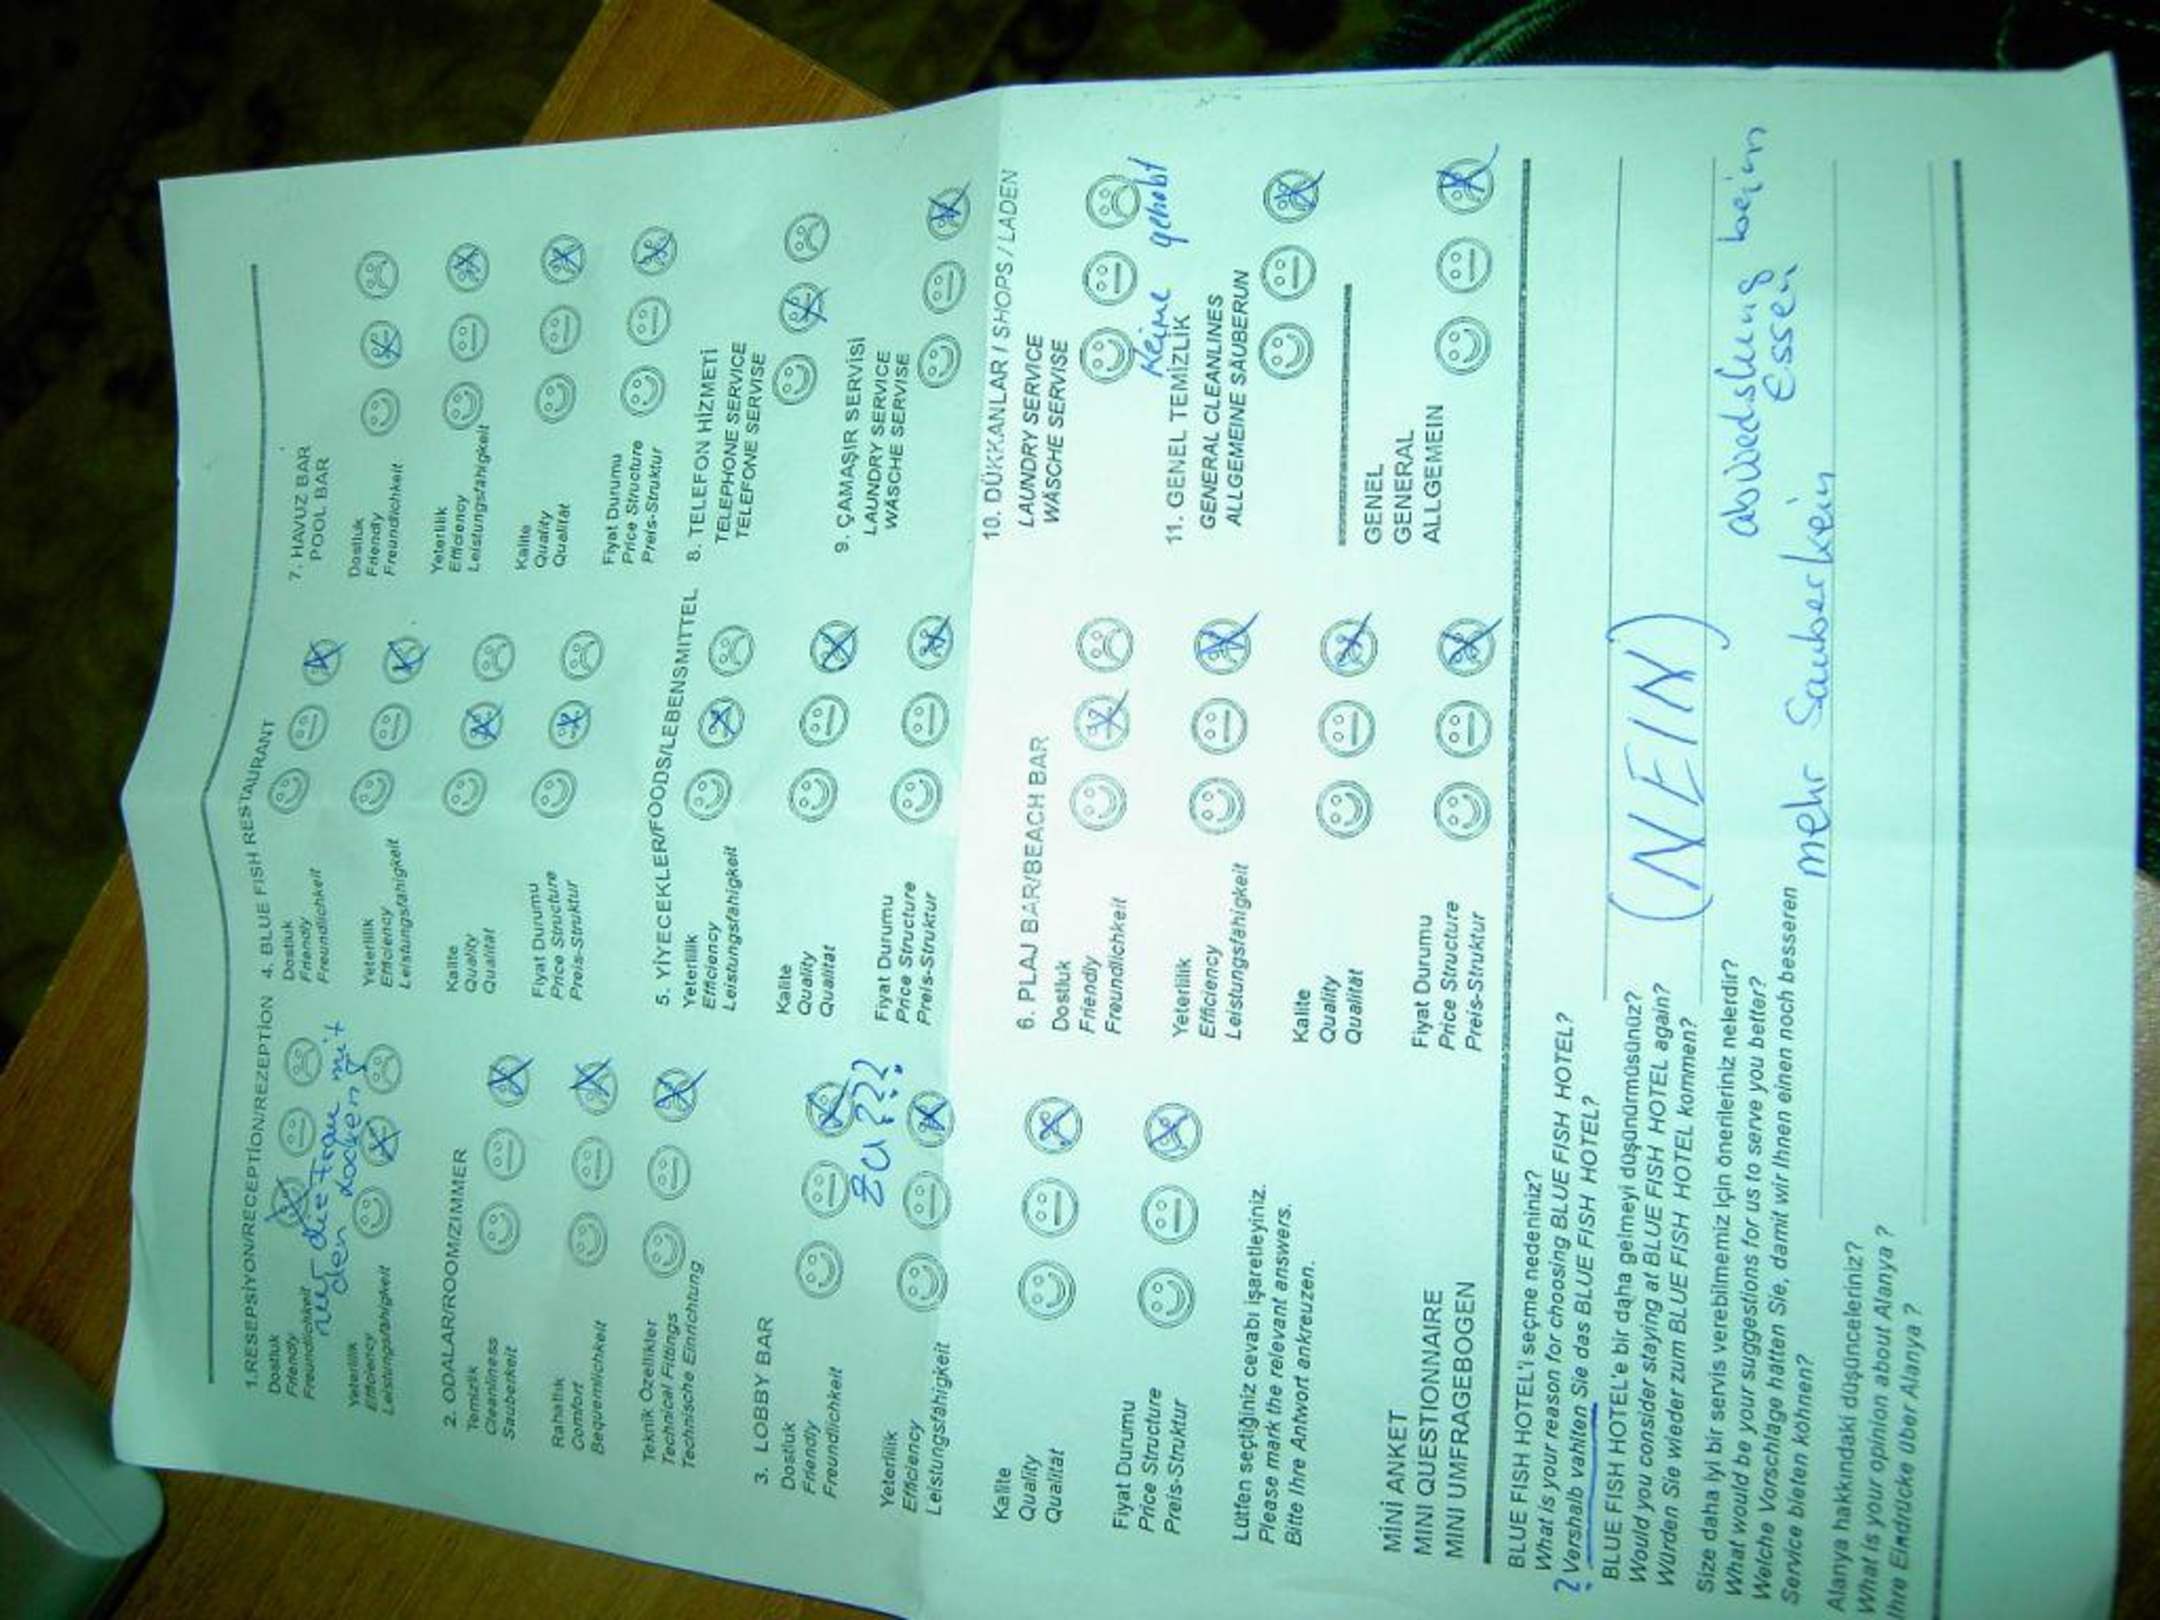 1.RESEPSİYON/RECEPTİON/REZEPTİON
Dostluk
Friendly
Freundlichkeit
nur die Frau mit
den Locken
Yeterlilik
Efficiency
Leistungsfähigkeit
2. ODALAR/ROOM/ZIMMER
Temizlik
Cleanliness
Sauberkeit
Rahatlık
Comfort
Bequemlichkeit
Teknik Özellikler
Technical Fittings
Technische Einrichtung
3. LOBBY BAR
Dostluk
Friendly
Freundlichkeit
zu ???
Yeterlilik
Efficiency
Leistungsfähigkeit
Kalite
Quality
Qualität
Fiyat Durumu
Price Structure
Preis-Struktur
4. BLUE FISH RESTAURANT
Dostluk
Friendly
Freundlichkeit
Yeterlilik
Efficiency
Leistungsfähigkeit
Kalite
Quality
Qualität
Fiyat Durumu
Price Structure
Preis-Struktur
5. YİYECEKLER/FOODS/LEBENSMITTEL
Yeterlilik
Efficiency
Leistungsfähigkeit
Kalite
Quality
Qualität
Fiyat Durumu
Price Structure
Preis-Struktur
6. PLAJ BAR/BEACH BAR
Dostluk
Friendly
Freundlichkeit
Yeterlilik
Efficiency
Leistungsfähigkeit
Kalite
Quality
Qualität
Fiyat Durumu
Price Structure
Preis-Struktur
7. HAVUZ BAR
POOL BAR
Dostluk
Friendly
Freundlichkeit
Yeterlilik
Efficiency
Leistungsfähigkeit
Kalite
Quality
Qualität
Fiyat Durumu
Price Structure
Preis-Struktur
8. TELEFON HİZMETİ
TELEPHONE SERVICE
TELEFONE SERVISE
9. ÇAMAŞIR SERVİSİ
LAUNDRY SERVICE
WÄSCHE SERVISE
10. DÜKKANLAR / SHOPS / LADEN
LAUNDRY SERVICE
WÄSCHE SERVISE
Keine gehabt
11. GENEL TEMİZLİK
GENERAL CLEANLINES
ALLGEMEINE SAUBERUN
GENEL
GENERAL
ALLGEMEIN
Lütfen seçtiğiniz cevabı işaretleyiniz.
Please mark the relevant answers.
Bitte Ihre Antwort ankreuzen.
MİNİ ANKET
MINI QUESTIONNAIRE
MINI UMFRAGEBOGEN
BLUE FISH HOTEL'i seçme nedeniniz?
What is your reason for choosing BLUE FISH HOTEL?
? Vershalb vahlten Sie das BLUE FISH HOTEL?
BLUE FISH HOTEL'e bir daha gelmeyi düşünürmüsünüz?
Would you consider staying at BLUE FISH HOTEL again?
Würden Sie wieder zum BLUE FISH HOTEL kommen?
(NEIN)
Size daha iyi bir servis verebilmemiz için önerileriniz nelerdir?
What would be your suggestions for us to serve you better?
Welche Vorschläge hätten Sie, damit wir Ihnen einen noch besseren
Service bieten können?
abwechslung beim
Essen
mehr Sauberkein
Alanya hakkındaki düşünceleriniz?
What is your opinion about Alanya ?
Ihre Eindrücke über Alanya ?